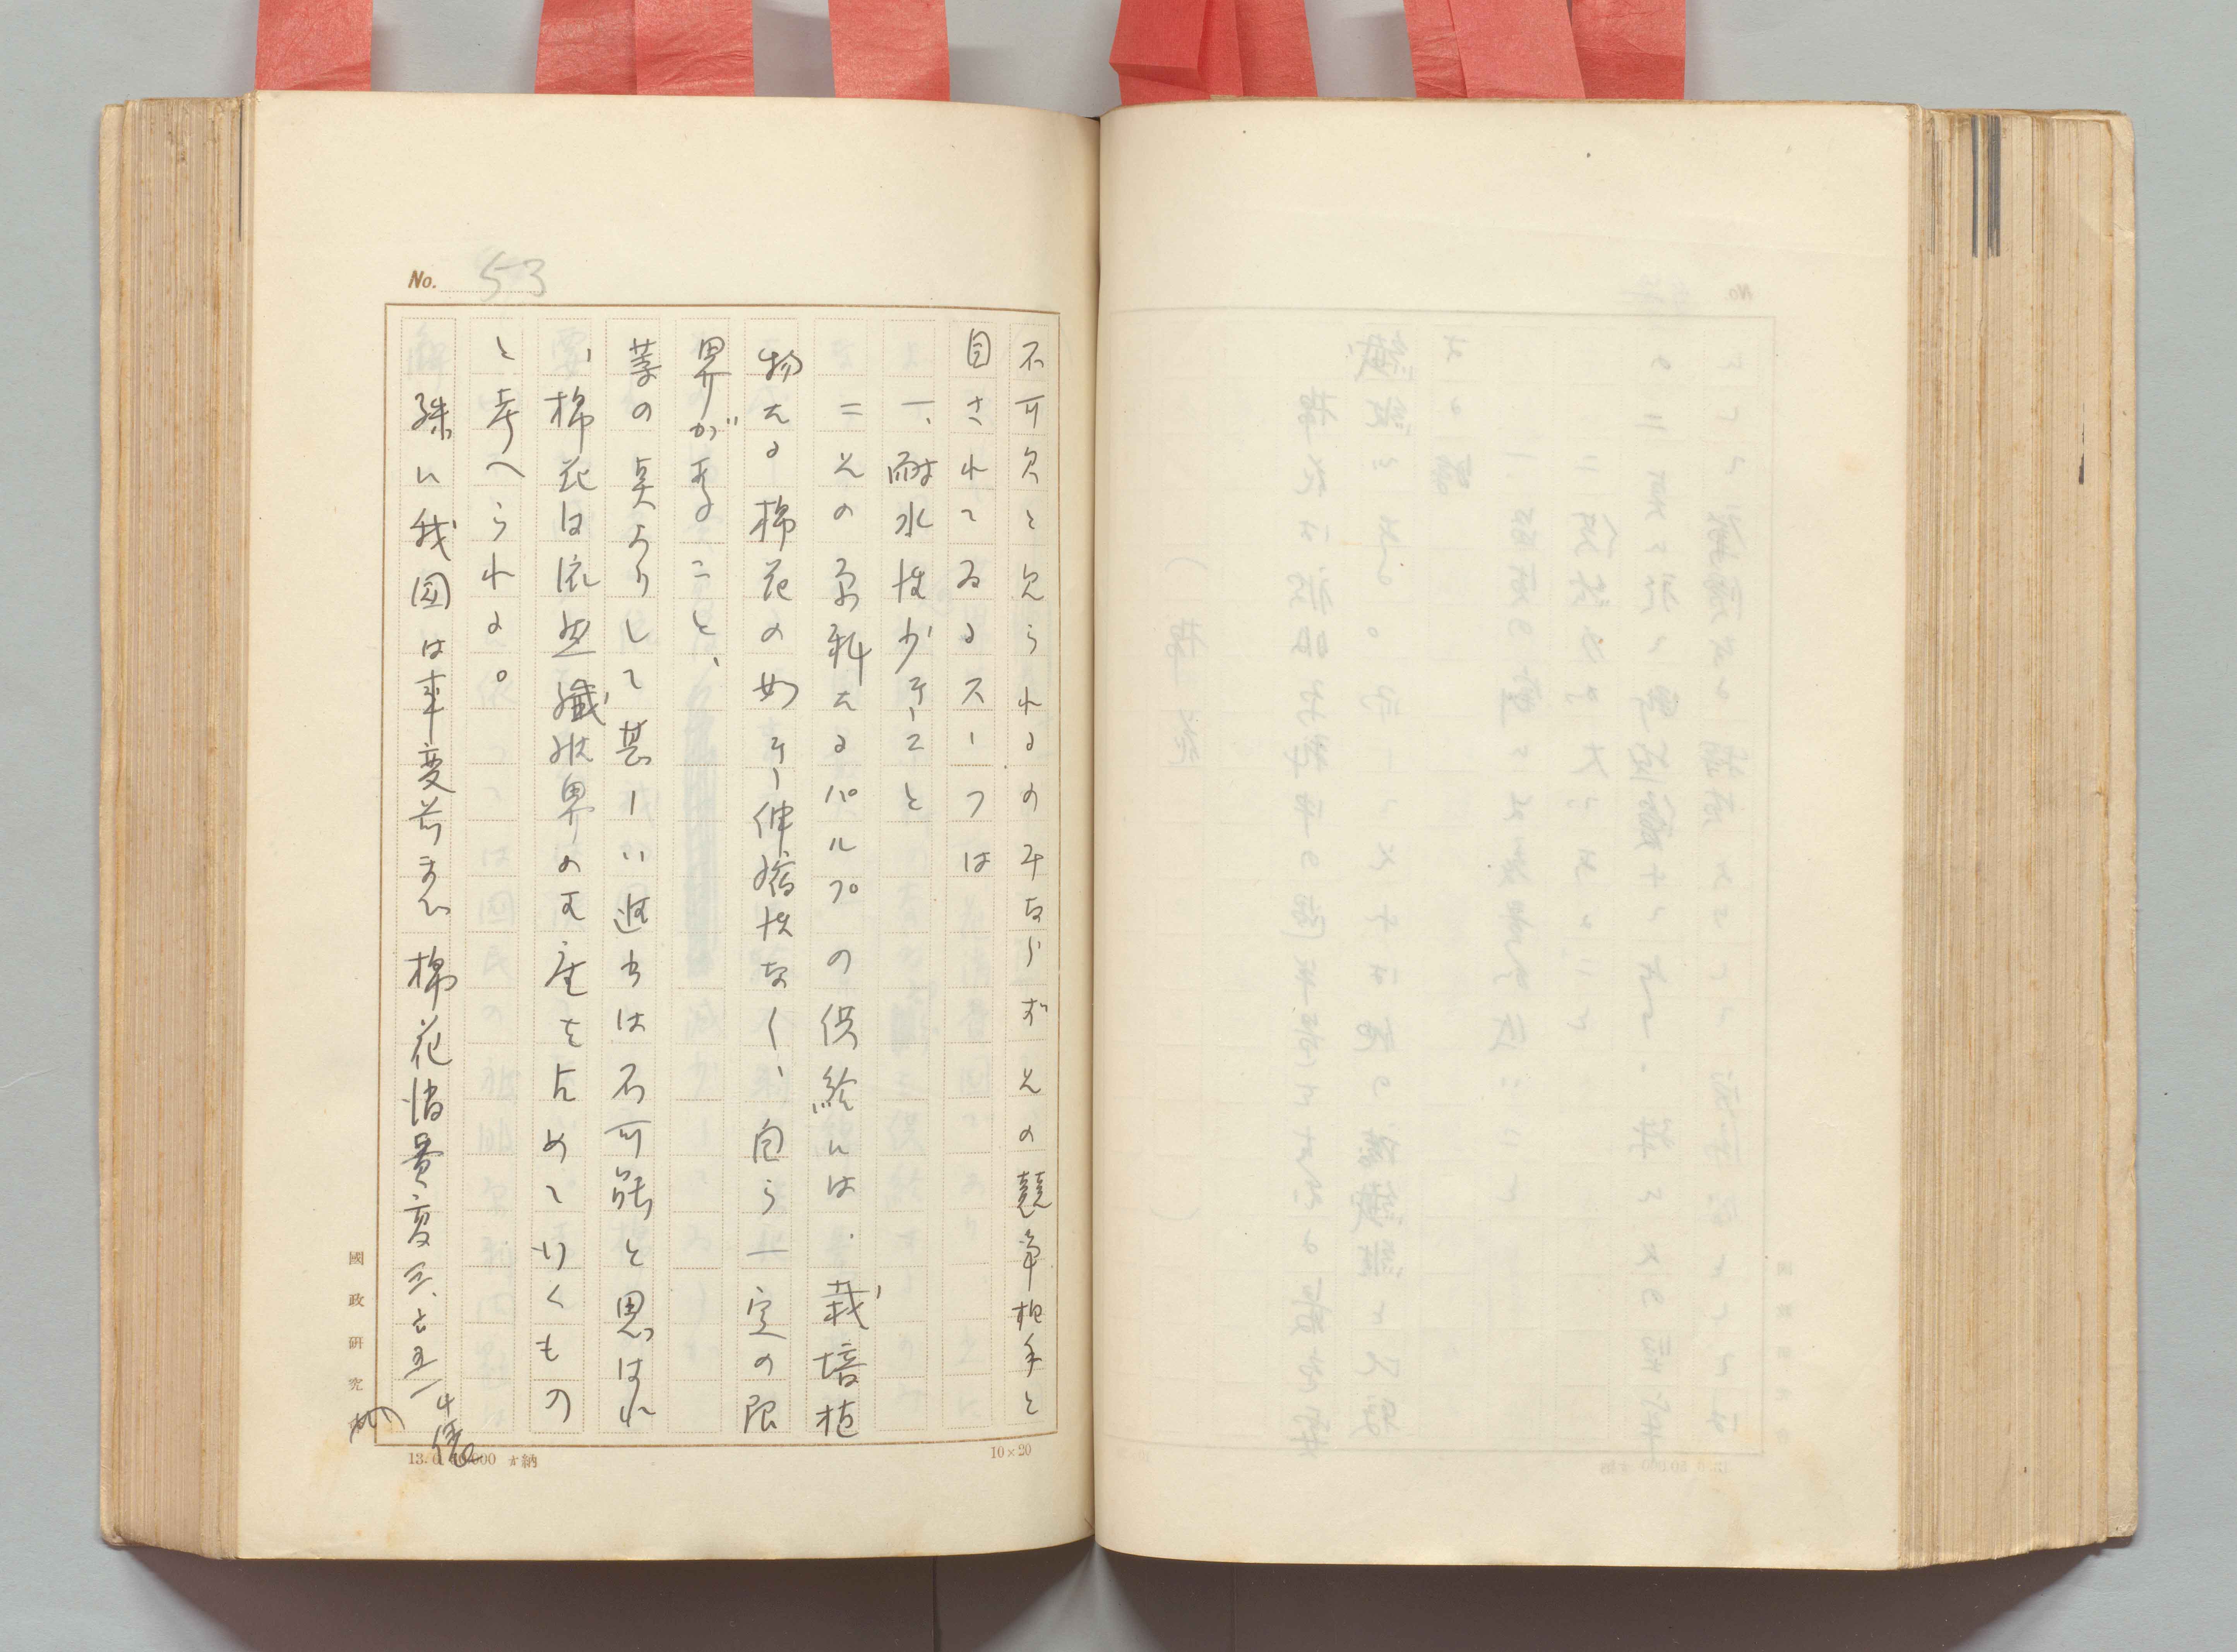 No. 53
不可欠と見られるのみならずその競争相手と
目されてゐるスーフは
一、耐水性少きこと
二その原料たるパルプの供給には、栽培植
物たる棉花の如き伸縮性なく、自ら一定の限
界がある こと、
等の点よりして甚しい進出は不可能と思はれ
、棉花は依然繊維界の王座を占めていくもの
と考へられる。
殊に我国は事変前 棉花消費高 三、七五
4億
國政研究
13. 6 000 納
10×20